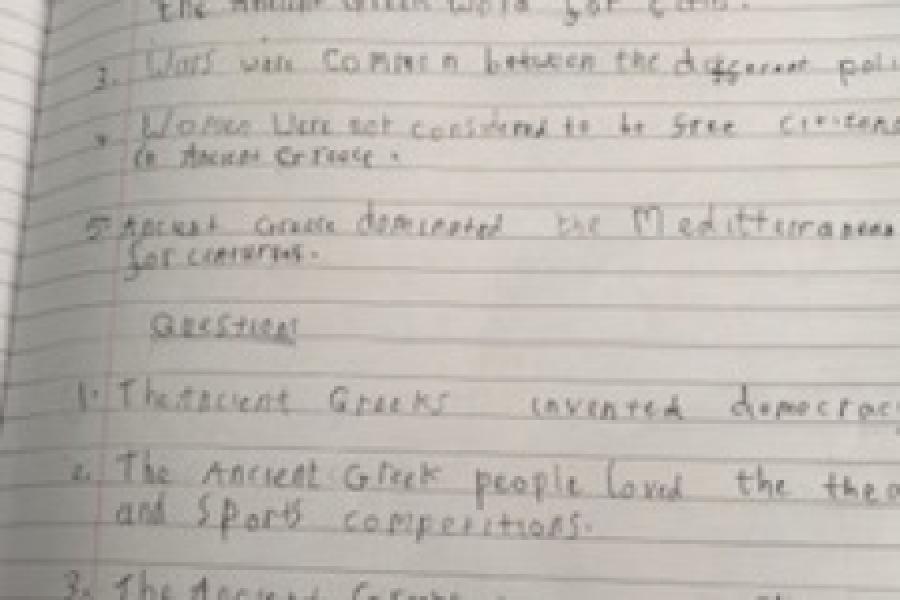 the Ancient Greek word for
3. Wars were common between the different
4 Women Were not considered to be free
in Ancient Greece.
5 Ancient Greece dominated the Meditterranean
for centuries.
Questions
1. The Ancient Greeks invented democrac
2. The Ancient Greek people loved the thea
and Sports competitions.
3. The Ancient Greeks